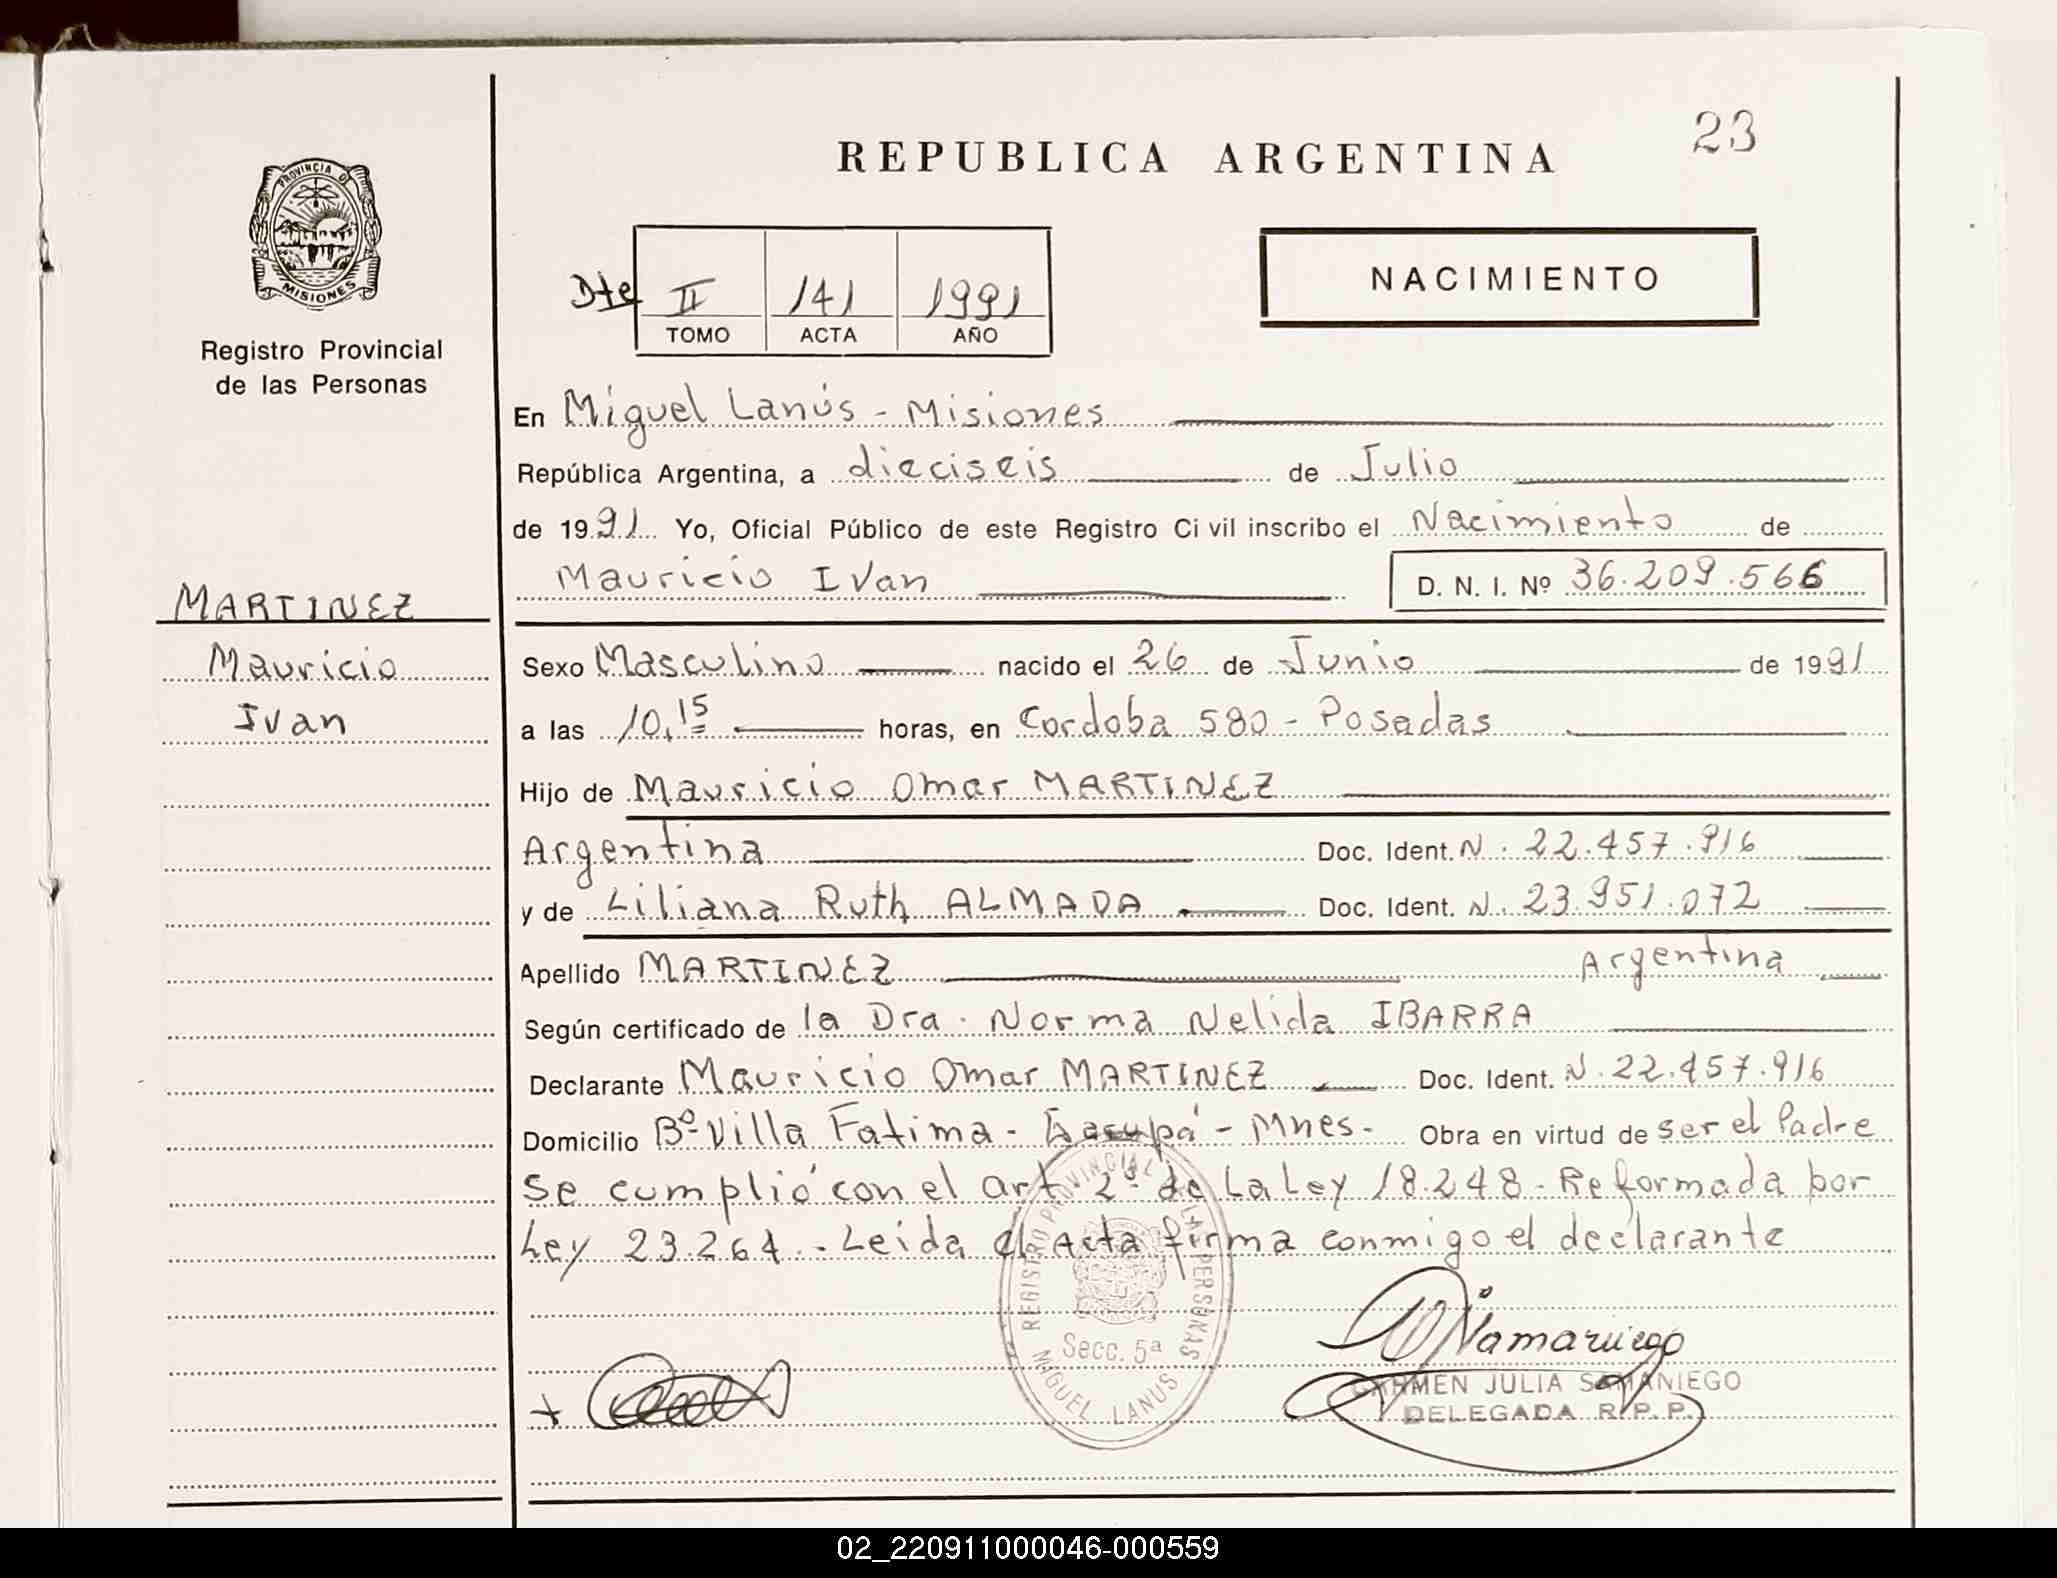 23
REPUBLICA ARGENTINA
PROVINCIA DE
MISIONES
Registro Provincial
de las Personas
Dte II 141 1991
TOMO ACTA AÑO
NACIMIENTO
En Miguel Lanús - Misiones
República Argentina, a dieciseis de Julio
de 1991 Yo, Oficial Público de este Registro Ci vil inscribo el Nacimiento de
Mauricio Ivan D. N. I. Nº 36.209.566
MARTINEZ
Mauricio
Ivan
Sexo Masculino nacido el 26 de Junio de 1991
a las 10,15 horas, en Cordoba 580 - Posadas
Hijo de Mauricio Omar MARTINEZ
Argentina Doc. Ident. N. 22.457.916
y de Liliana Ruth ALMADA Doc. Ident. N. 23.951.072
Apellido MARTINEZ Argentina
Según certificado de la Dra. Norma Nelida IBARRA
Declarante Mauricio Omar MARTINEZ Doc. Ident. N. 22.457.916
Domicilio Bº Villa Fatima - Garupá - Mnes. Obra en virtud de ser el Padre
Se cumplió con el art 2º de La Ley 18.248 - Reformada por
Ley 23.264 - Leida el Acta firma conmigo el declarante
REGISTRO PROVINCIAL DE LAS PERSONAS
Secc. 5ª
MIGUEL LANUS
CARMEN JULIA SAMANIEGO
DELEGADA R.P.P.
02_220911000046-000559